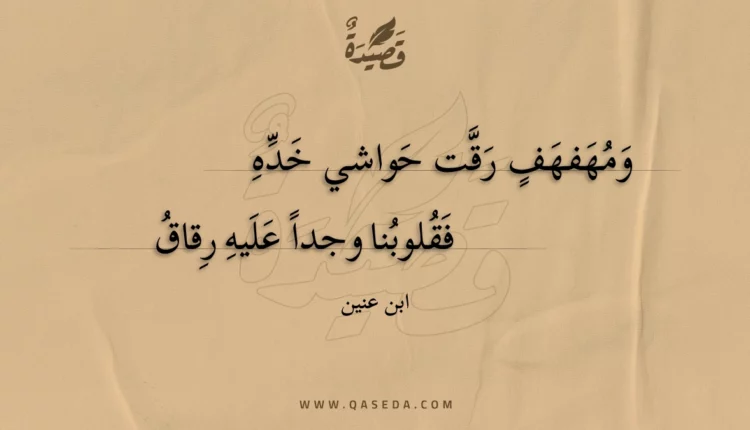 قَصِيْدَةٌ
وَمُهَفهَفٍ رَقَّت حَواشي خَدِّهِ
فَقُلوبُنا وجداً عَلَيهِ رِقاقُ
ابن عنين
WWW.QASEDA.COM